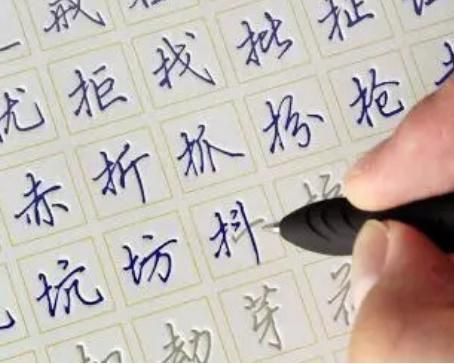 戒
拒找批扯
赤折抓扮抢
坑坊抖
劫芽